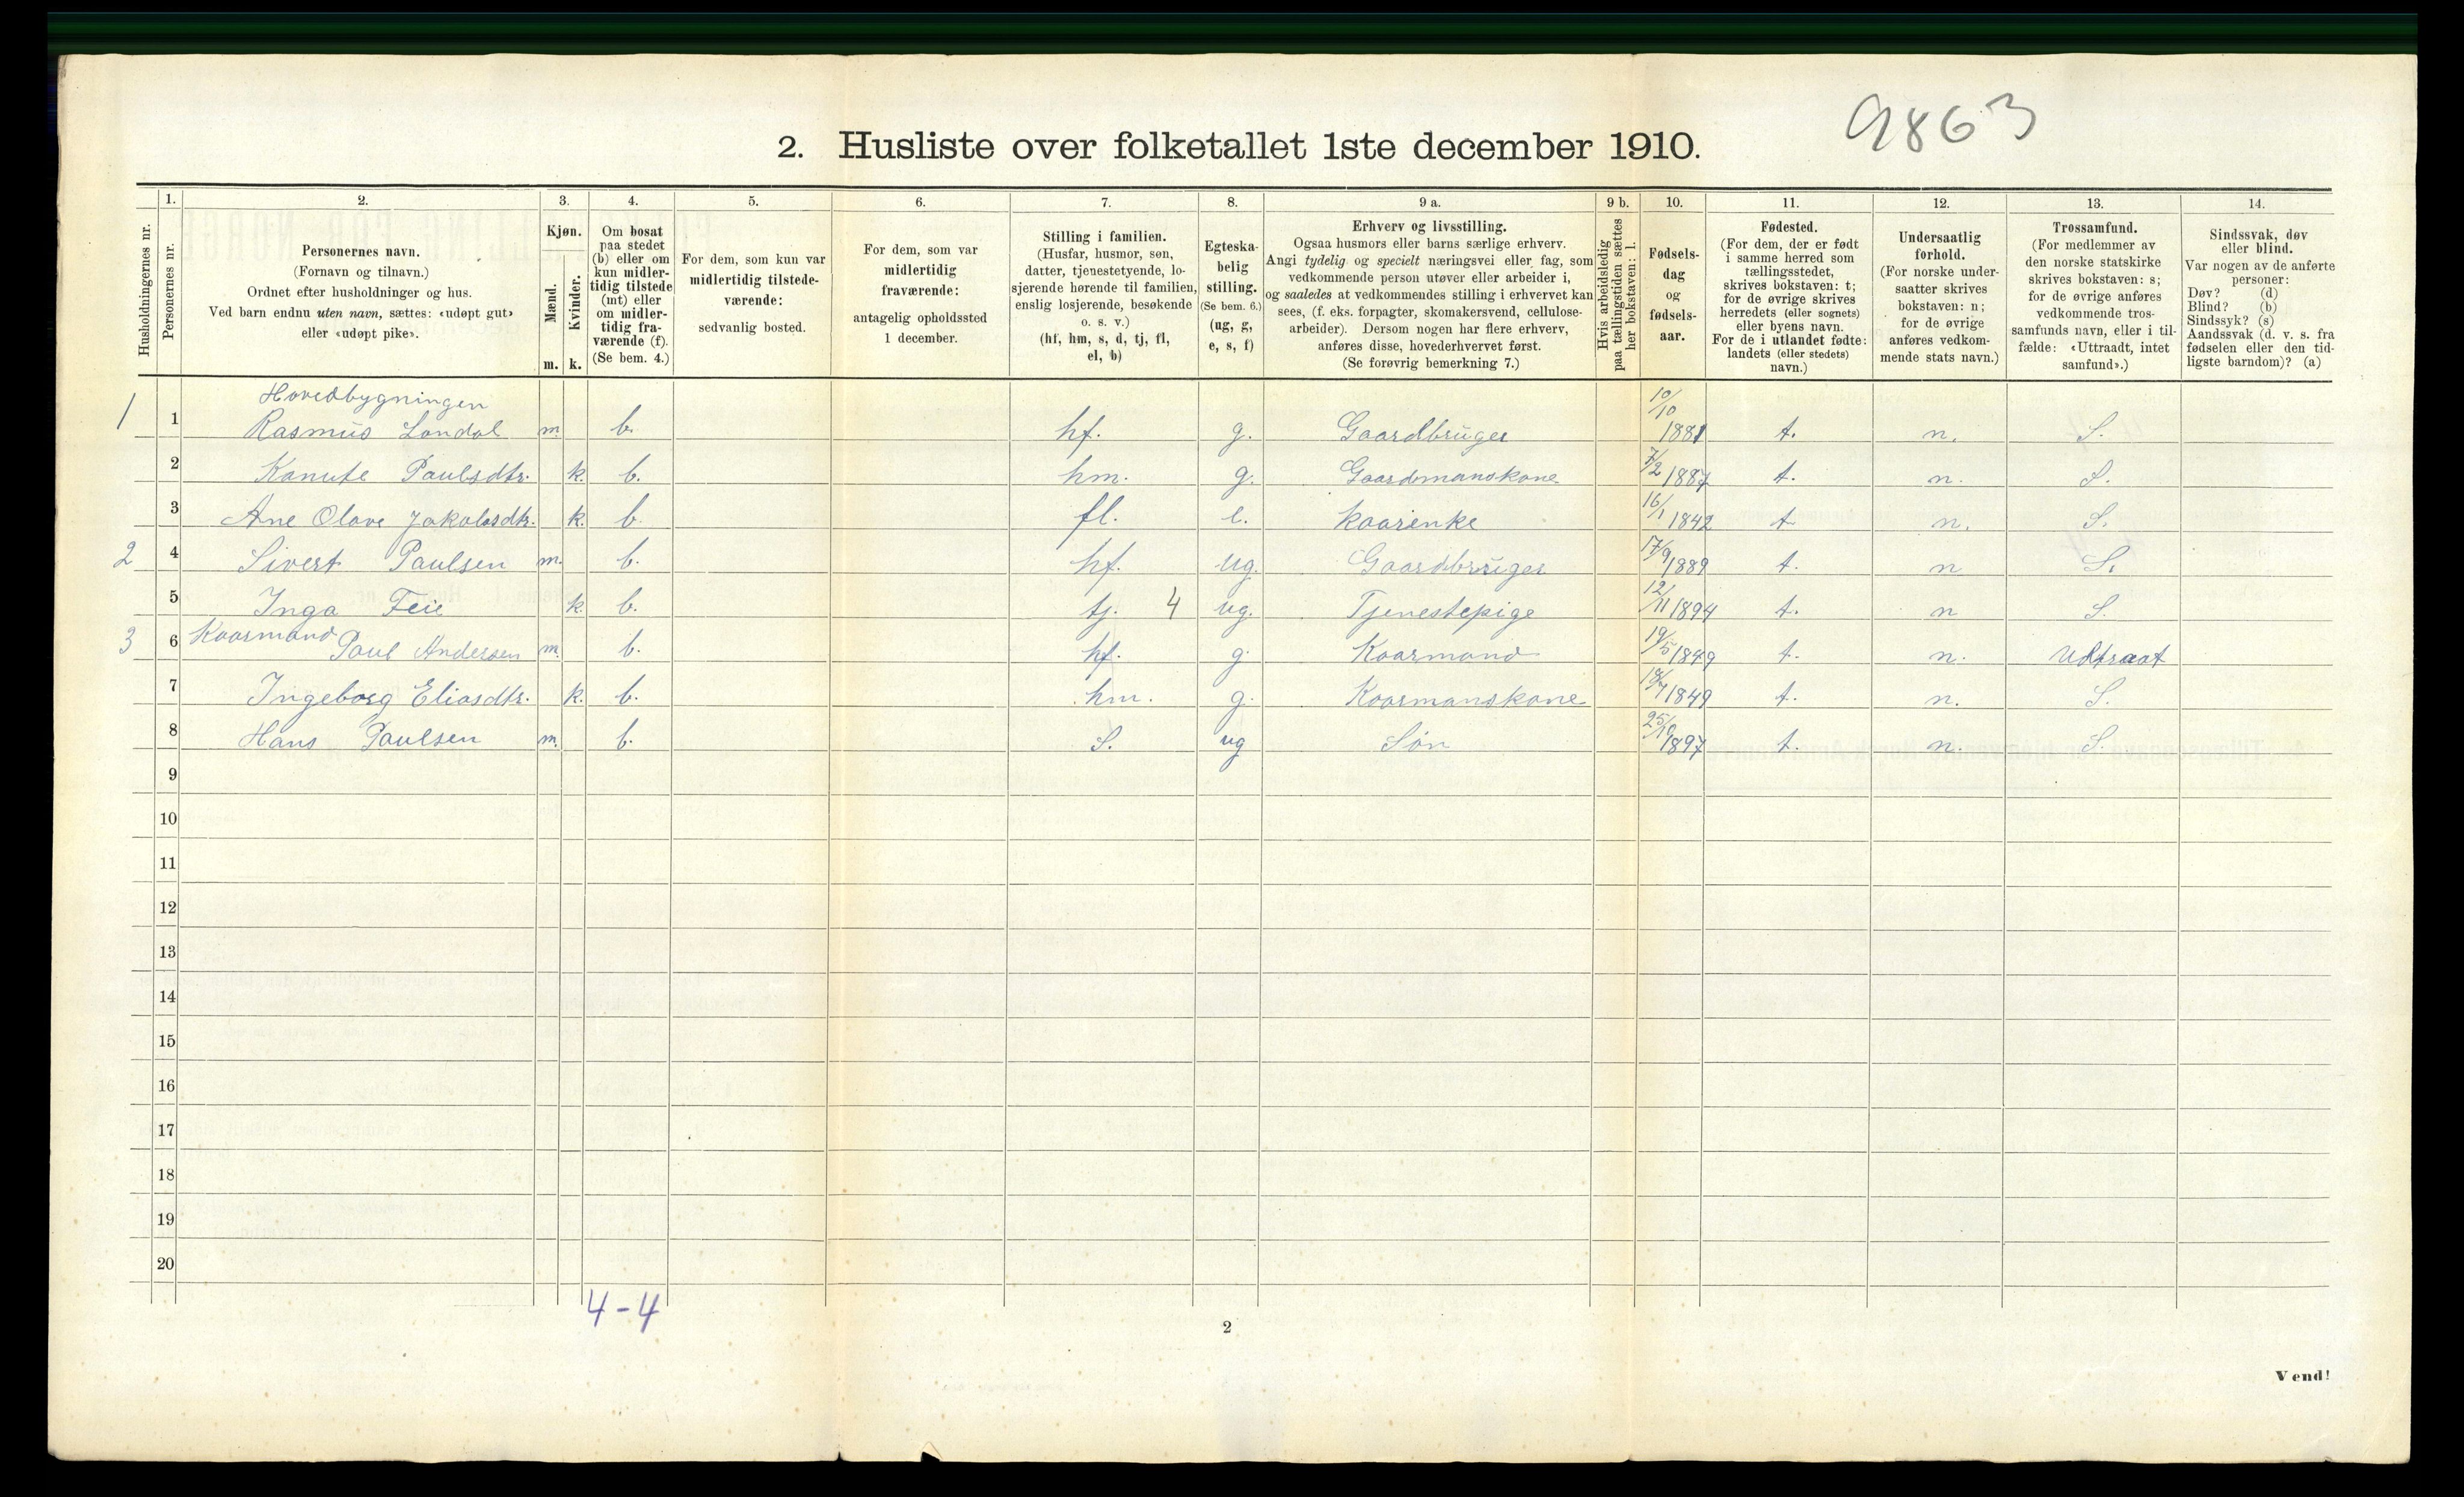 9863
2. Husliste over folketallet 1ste december 1910.
Husholdningernes nr.
1.
Personernes nr.
2.
Personernes navn.
(Fornavn og tilnavn.)
Ordnet efter husholdninger og hus.
Ved barn endnu uten navn, sættes: «udøpt gut»
eller «udøpt pike».
3.
Kjøn.
Mænd.
m.
Kvinder.
k.
4.
Om bosat
paa stedet
(b) eller om
kun midler-
tidig tilstede
(mt) eller
om midler-
tidig fra-
værende (f).
(Se bem. 4.)
5.
For dem, som kun var
midlertidig tilstede-
værende:
sedvanlig bosted.
6.
For dem, som var
midlertidig
fraværende:
antagelig opholdssted
1 december.
7.
Stilling i familien.
(Husfar, husmor, søn,
datter, tjenestetyende, lo-
sjerende hørende til familien,
enslig losjerende, besøkende
o. s. v.)
(hf, hm, s, d, tj, fl,
el, b)
8.
Egteska-
belig
stilling.
(Se bem. 6.)
(ug, g,
e, s, f)
9 a.
Erhverv og livsstilling.
Ogsaa husmors eller barns særlige erhverv.
Angi tydelig og specielt næringsvei eller fag, som
vedkommende person utøver eller arbeider i,
og saaledes at vedkommendes stilling i erhvervet kan
sees, (f. eks. forpagter, skomakersvend, cellulose-
arbeider). Dersom nogen har flere erhverv,
anføres disse, hovederhvervet først.
(Se forøvrig bemerkning 7.)
9 b.
Hvis arbeidsledig
paa tællingstiden sættes
her bokstaven: l.
10.
Fødsels-
dag
og
fødsels-
aar.
11.
Fødested.
(For dem, der er født
i samme herred som
tællingsstedet,
skrives bokstaven: t;
for de øvrige skrives
herredets (eller sognets)
eller byens navn.
For de i utlandet fødte:
landets (eller stedets)
navn.)
12.
Undersaatlig
forhold.
(For norske under-
saatter skrives
bokstaven: n;
for de øvrige
anføres vedkom-
mende stats navn.)
13.
Trossamfund.
(For medlemmer av
den norske statskirke
skrives bokstaven: s;
for de øvrige anføres
vedkommende tros-
samfunds navn, eller i til-
fælde: «Uttraadt, intet
samfund».)
14.
Sindssvak, døv
eller blind.
Var nogen av de anførte
personer:
Døv? (d)
Blind? (b)
Sindssyk? (s)
Aandssvak (d. v. s. fra
fødselen eller den tid-
ligste barndom)? (a)
Hovedbygningen
1 1 Rasmus Londal m b. hf. g. Gaardbruger 10/10 1881 t. n. S.
2 Kanute Paulsdtr. k. b. hm. g. Gaardmanskone 7/2 1887 t. n. S.
3 Ane Olave Jakobsdtr. k. b. fl. e. kaarenke 16/1 1842 t. n. S.
2 4 Sivert Paulsen m. b. hf. ug. Gaardbruger 17/9 1889 t. n S.
5 Inga Feie k. b. tj. 4 ug. Tjenestepige 12/11 1894 t. n S.
3 6 Kaarmand Paul Andersen m. b. hf. g. Kaarmand 19/5 1849 t. n. Udtraat
7 Ingeborg Eliasdtr. k. b. hm. g. Kaarmanskone 1849 t. n. S.
8 Hans Paulsen m. b. S. ug Søn 25/10 1897 t. n. S.
9
10
11
12
13
14
15
16
17
18
19
20
4-4
2
Vend!